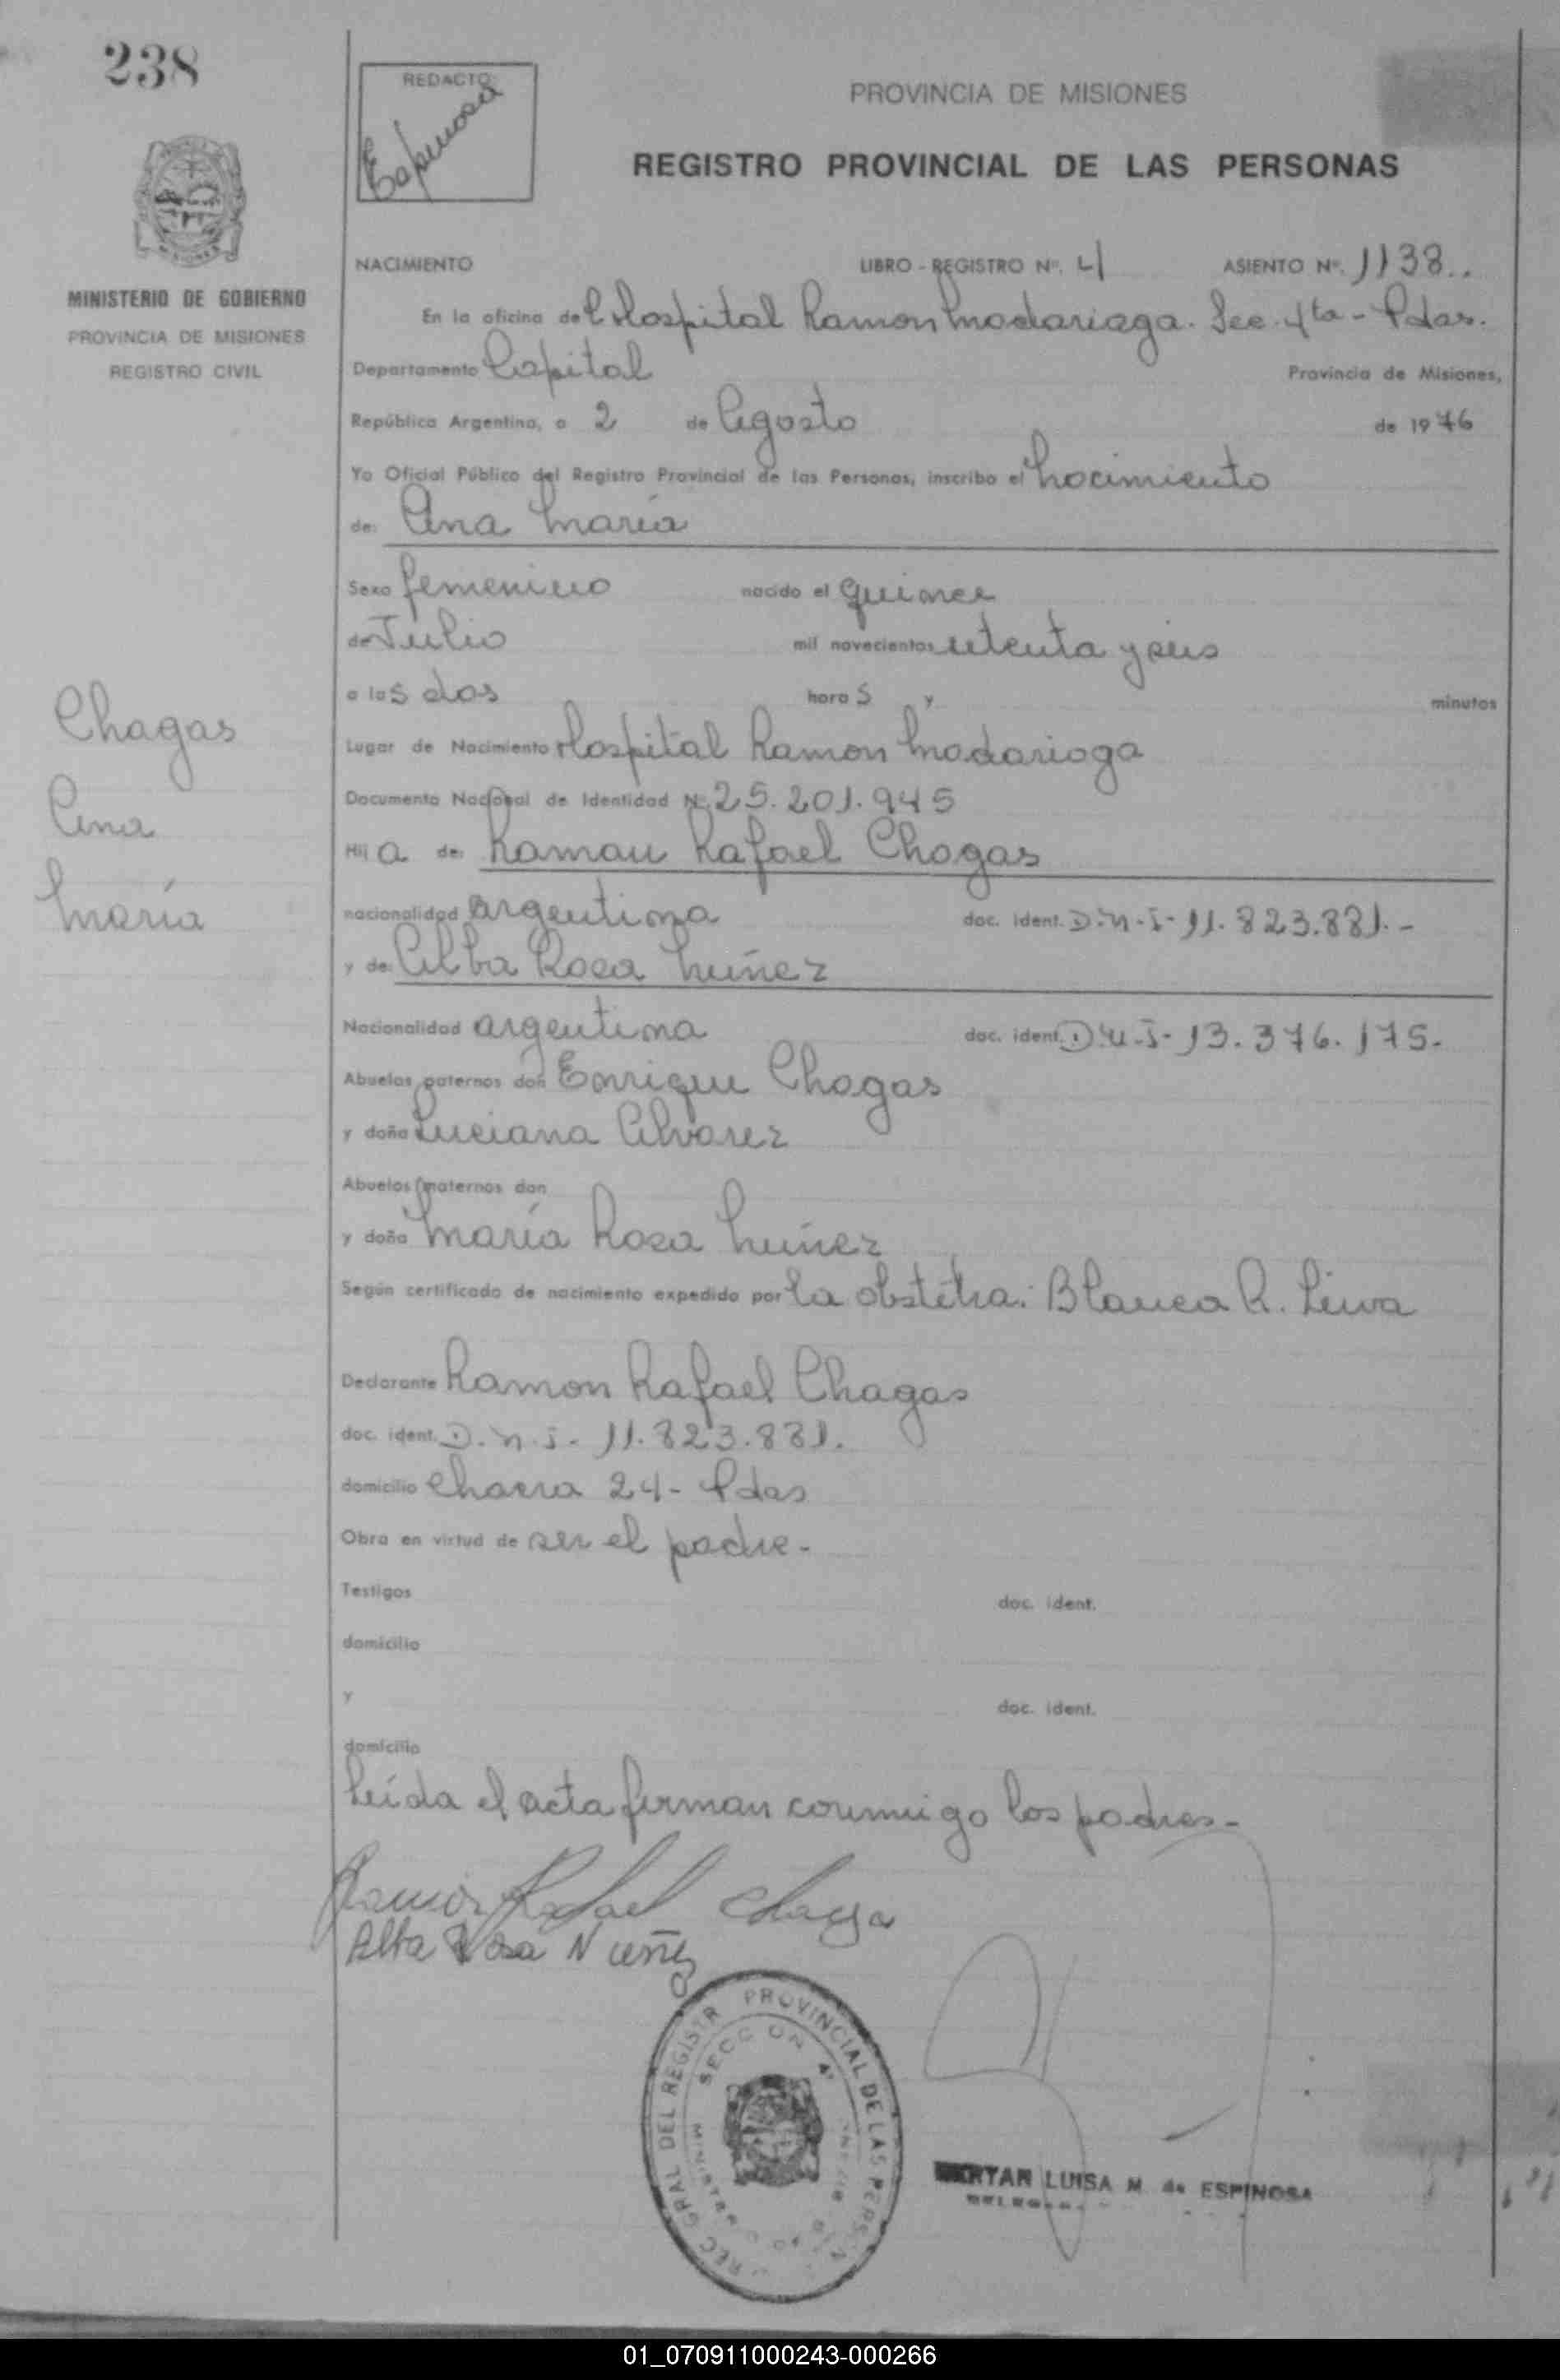 238
REDACTO:
Espinosa
PROVINCIA DE MISIONES
REGISTRO PROVINCIAL DE LAS PERSONAS
MISIONES
MINISTERIO DE GOBIERNO
PROVINCIA DE MISIONES
REGISTRO CIVIL
NACIMIENTO LIBRO - REGISTRO Nº. 4 ASIENTO Nº. 1138..
En la oficina del Hospital Ramon Madariaga. Sec. 4ta - Pdas.
Departamento Capital Provincia de Misiones,
República Argentina, a 2 de Agosto de 1976
Yo Oficial Público del Registro Provincial de las Personas, inscribo el Nacimiento
de: Ana María
Sexo femenino nacido el quince
de Julio mil novecientos setenta y seis
a las dos horas y minutos
Lugar de Nacimiento Hospital Ramon Madariaga
Documento Nacional de Identidad Nº 25.201.945
Hija de: Ramon Rafael Chagas
nacionalidad argentina doc. ident. D.N.I- 11.823.881.-
y de: Alba Rosa Nuñez
Nacionalidad argentina doc. ident. D.N.I- 13.376.175.
Abuelos paternos don Enrique Chagas
y doña Luciana Alvarez
Abuelos maternos don
y doña María Rosa Nuñez
Según certificado de nacimiento expedido por la obstétra: Blanca R. Leiva
Declarante Ramon Rafael Chagas
doc. ident. D.N.I- 11.823.881.
domicilio Chacra 24- Pdas
Obra en virtud de ser el padre-
Testigos doc. ident.
domicilio
y doc. ident.
domicilio
Leída el acta firman conmigo los padres-
Chagas
Ana
María
Ramón Rafael Chaga
Alba Rosa Nuñez
PROVINCIAL DE LAS
GRAL DEL REGISTR
SECC ON 4ª
LUISA M de ESPINOSA
01_070911000243-000266